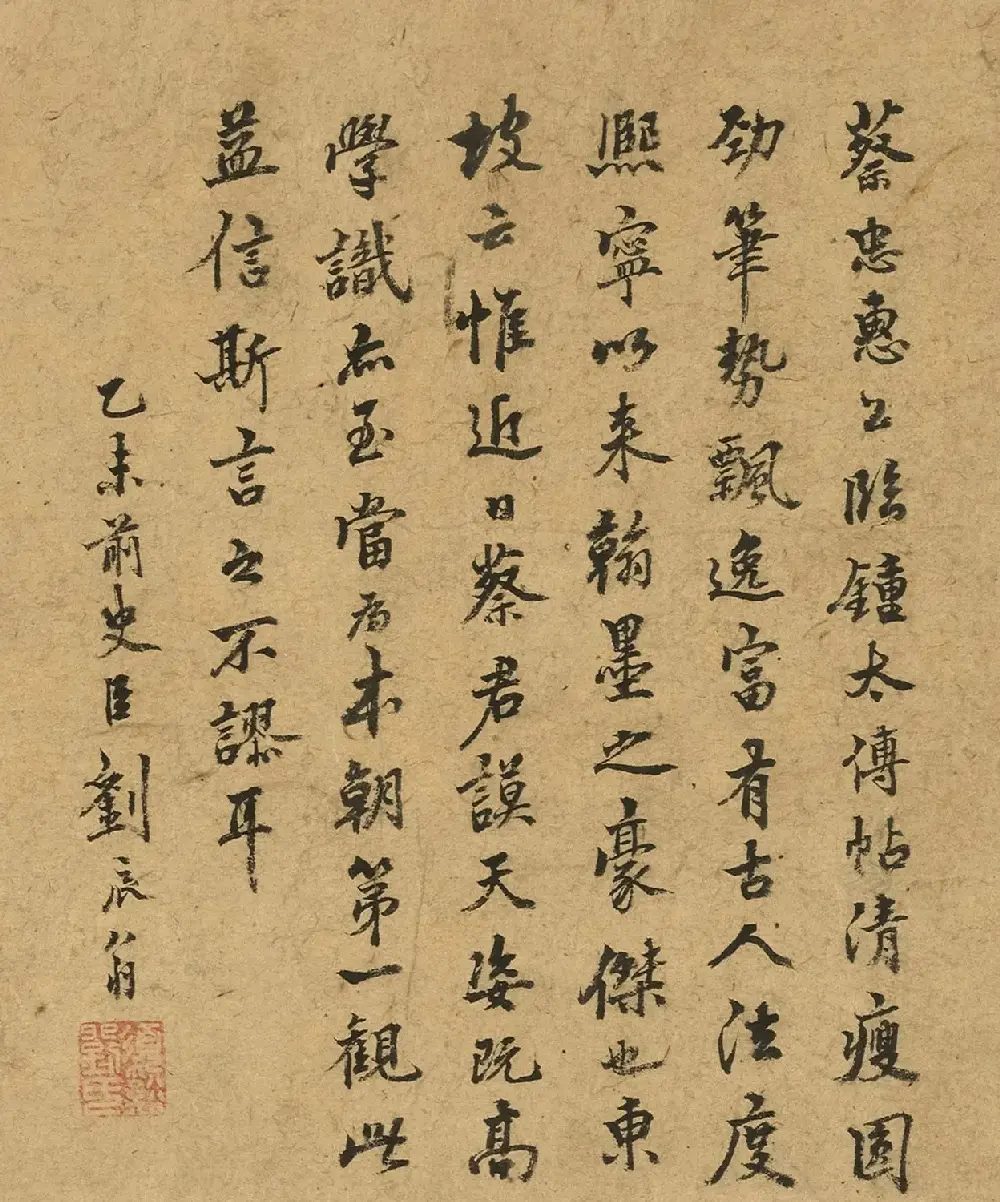 蔡忠惠公臨鐘太傅帖清瘦圓
勁筆勢飄逸富有古人法度
熙寧以来翰墨之豪傑也東
坡云惟近日蔡君謨天姿既高
學識亦至當為本朝第一觀此
益信斯言之不謬耳
乙未前史臣劉辰翁